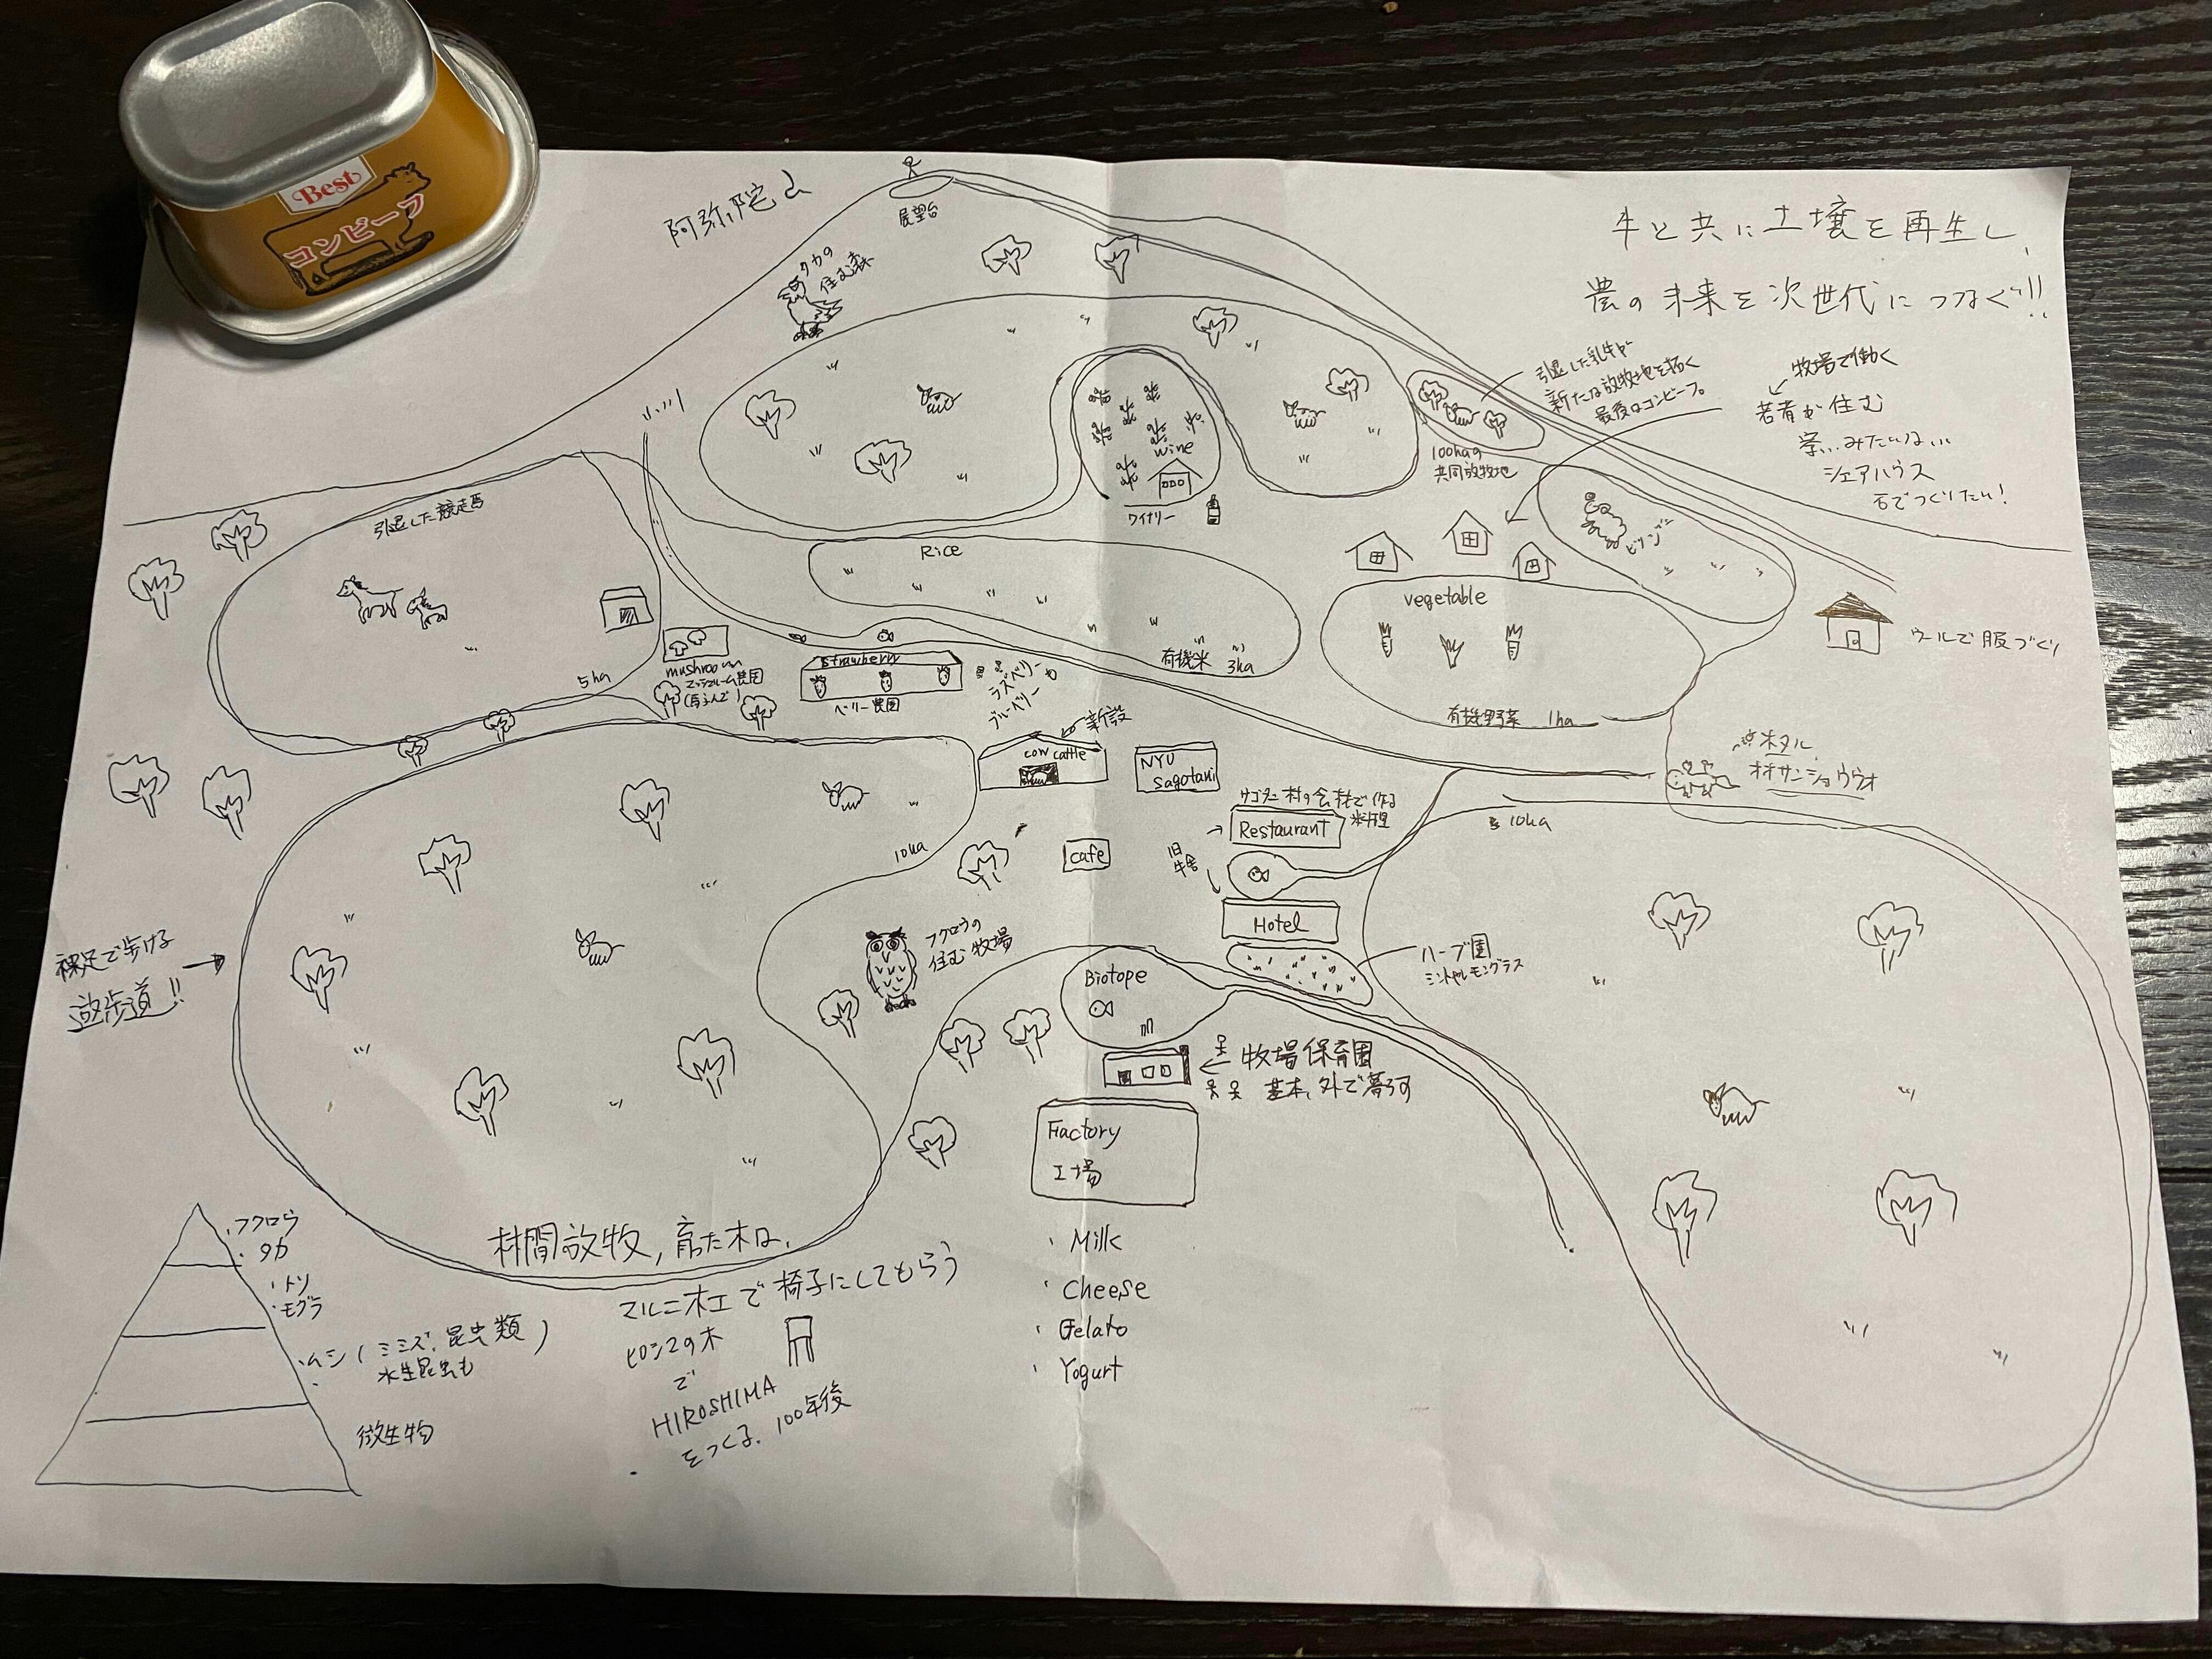 Best
コンビーフ
阿弥陀山
展望台
タカの
住む森
牛と共に土壌を再生し、
農の未来を次世代につなぐ!!
引退した乳牛が
新たな放牧地を拓く
最後はコンビーフ。
100haの
共同放牧地
牧場で働く
若者が住む
寮...みたいな...
シェアハウス
石でつくりたい!
小川
wine
ワイナリー
ヒツジ
ウールで服づくり
引退した競走馬
5ha
Rice
有機米 3ha
vegetable
有機野菜 1ha
mushroom
マッシュルーム農園
strawberry
ベリー農園
ラズベリー
ブルーベリーも
新設
cow cattle
NYU
sagotani
ホタル
オオサンショウウオ
サゴタニ村の食材で作る
料理
Restaurant
旧
牛舎
cafe
Hotel
ハーブ園
ミントやレモングラス
10ha
10ha
フクロウの
住む牧場
裸足で歩ける
散歩道!!
Biotope
牧場保育園
基本、外で暮らす
Factory
工場
・Milk
・Cheese
・Gelato
・Yogurt
林間放牧,育った木は、
マルニ木工で椅子にしてもらう
ヒロシマの木
で
HIROSHIMA
をつくる、100年後
・フクロウ
・タカ
・トリ
・モグラ
・ムシ(ミミズ、昆虫類)
水生昆虫も
微生物